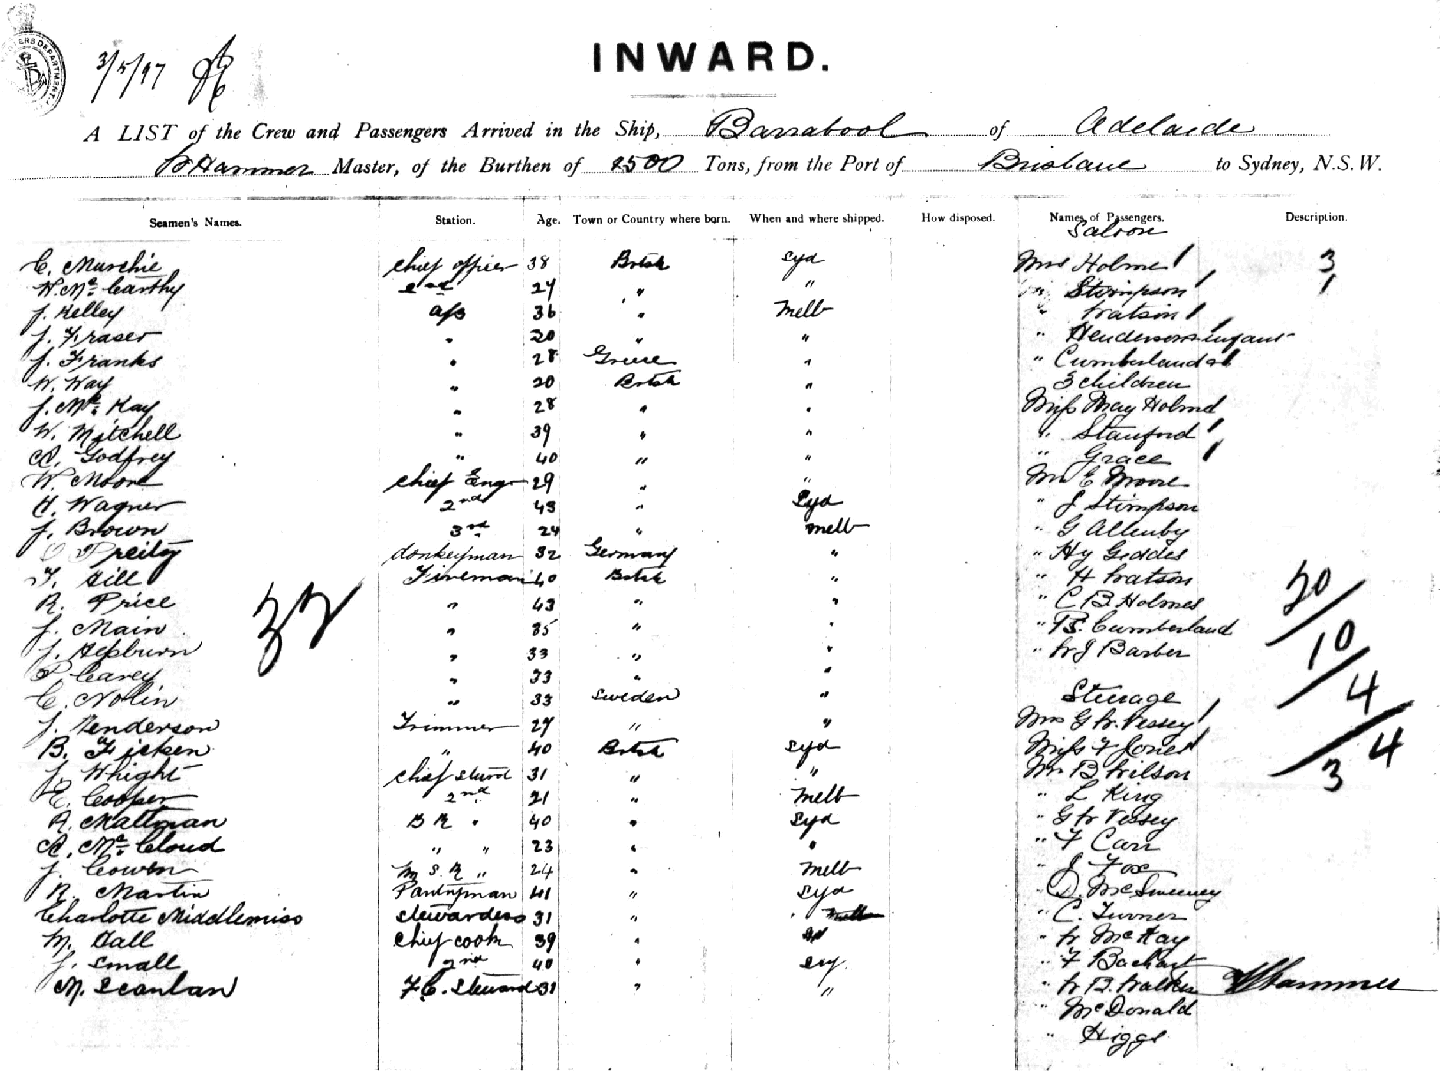 3/5/97
INWARD.
A LIST of the Crew and Passengers Arrived in the Ship, Barrabool of Adelaide
Hammer Master, of the Burthen of 2500 Tons, from the Port of Brisbane to Sydney, N.S.W.
Seamen's Names. Station. Age. Town or Country where born. When and where shipped. How disposed. Names of Passengers. Description.
Saloon
C. Murchie chief officer 38 British Syd Mrs Holme 1 3
W. McCarthy 2nd 27 " " " Stimpson 1 1
J. Kelley a/b 36 " Melb " Watson 1
J. Fraser " 20 " " " Henderson infant
J. Franks " 28 Greece " " Cumberland &
W. Way " 20 British " 3 children
J. McKay " 28 " " Miss May Holme
W. Mitchell " 39 " " " Stanford 1
A. Godfrey " 40 " " " Grace 1
W. Moore chief Engr 29 " " Mr E Moore
H. Wagner 2nd 43 " Syd " J Stimpson
J. Brown 3rd 24 " Melb " G Allenby
donkeyman 32 Germany " " Hy Geddes
F. Gill Fireman 40 British " " H Watson
R. Price " 43 " " " C B Holmes 20
J. Main " 35 " " " B. Cumberland
32
J. Hepburn " 33 " " " W J Barber 10
P. Carey " 33 " "
C. Nolin " 33 Sweden " Steerage 4
J. Henderson Trimmer 27 " " Mrs G W Vesey 1
B. Ficken " 40 British Syd Miss F Jones 1 4
J. Whight chief Stewd 31 " " Mr B Wilson 3
E. Cooper 2nd 21 " Melb " L King
A. Maltman B R " 40 " Syd " G W Vesey
A. McCloud " " 23 " " " F Carr
J. Cowen M S R " 24 " Melb " J Fox
R. Martin Pantryman 41 " Syd " D. McSweeney
Charlotte Middlemiss Stewardess 31 " " C. Turner
M. Hall chief cook 39 " " W McKay
J. Small 2nd 40 " Sy. " F
M. Scanlan F.C. Steward 31 " " " W B. Walker Hammer
" McDonald
" Higgs